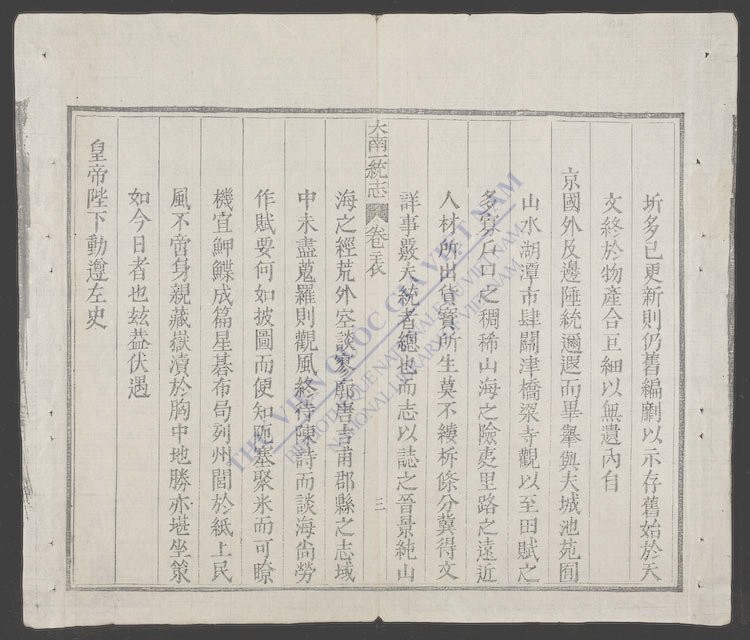 圻多已更新則仍舊編劘以示存舊始於天
文終於物產合巨細以無遺內自
京國外及邊陲統邇遐而畢舉與夫城池苑囿
山水湖潭市肆關津橋梁寺觀以至田賦之
多寡戶口之稠稀山海之險夷里路之遠近
人材所出貨寶所生莫不縷柝條分冀得文
詳事覈夫統者總也而志以誌之晉景純山
大南一統志 卷 表
三
海之經荒外空談寥廓唐吉甫郡縣之志域
中未盡蒐羅則觀風終待陳詩而談海尚勞
作賦要何如披圖而便知阨塞聚米而可瞭
機宜魻鰈成篇星碁布局列州閭於紙上民
風不啻身親藏嶽瀆於胸中地勝亦堪坐策
如今日者也玆葢伏遇
皇帝陛下動遵左史
THƯ VIỆN QUỐC GIA VIỆT NAM
BIBLIOTHÈQUE NATIONALE DU VIETNAM
NATIONAL LIBRARY OF VIETNAM